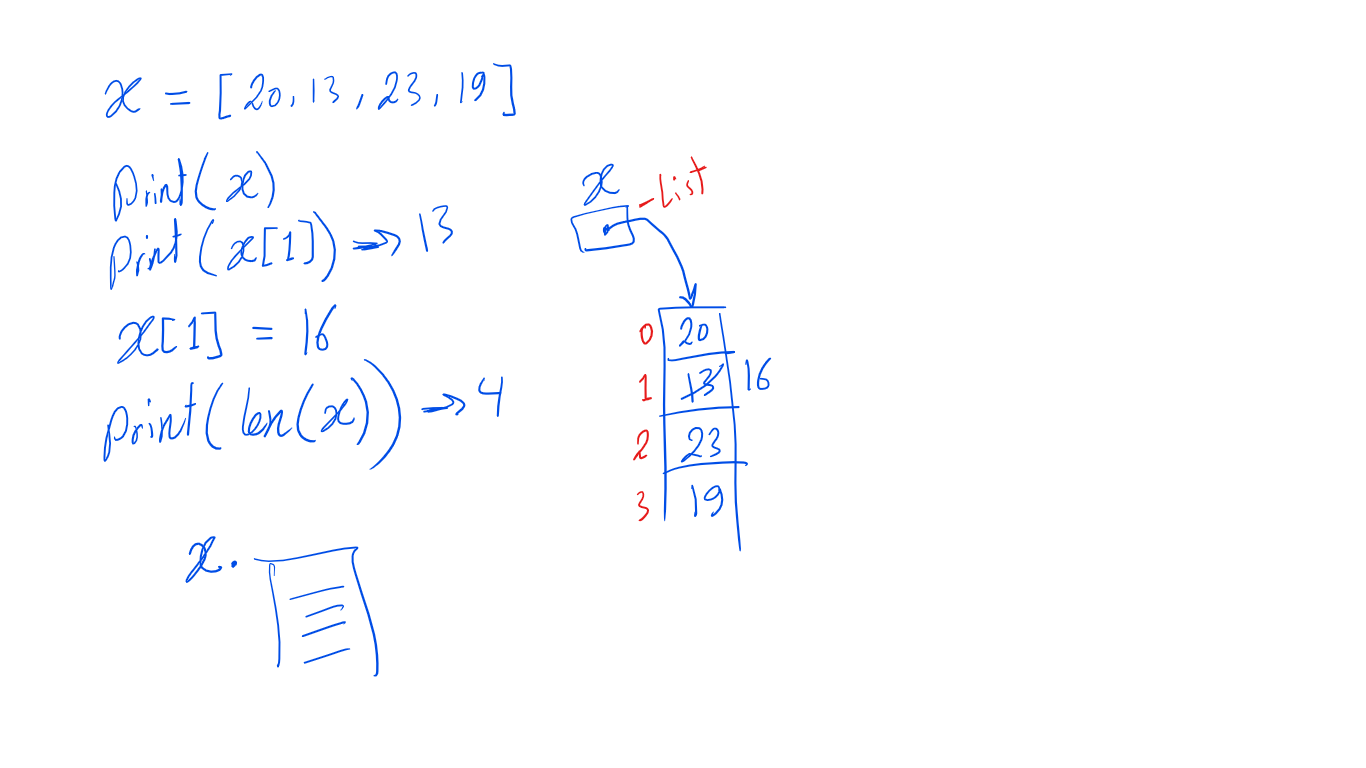 x = [20, 13, 23, 19]
print(x)
print(x[1]) ->> 13
x[1] = 16
print(len(x)) ->> 4
x.
x - List
0 20
1 13 16
2 23
3 19